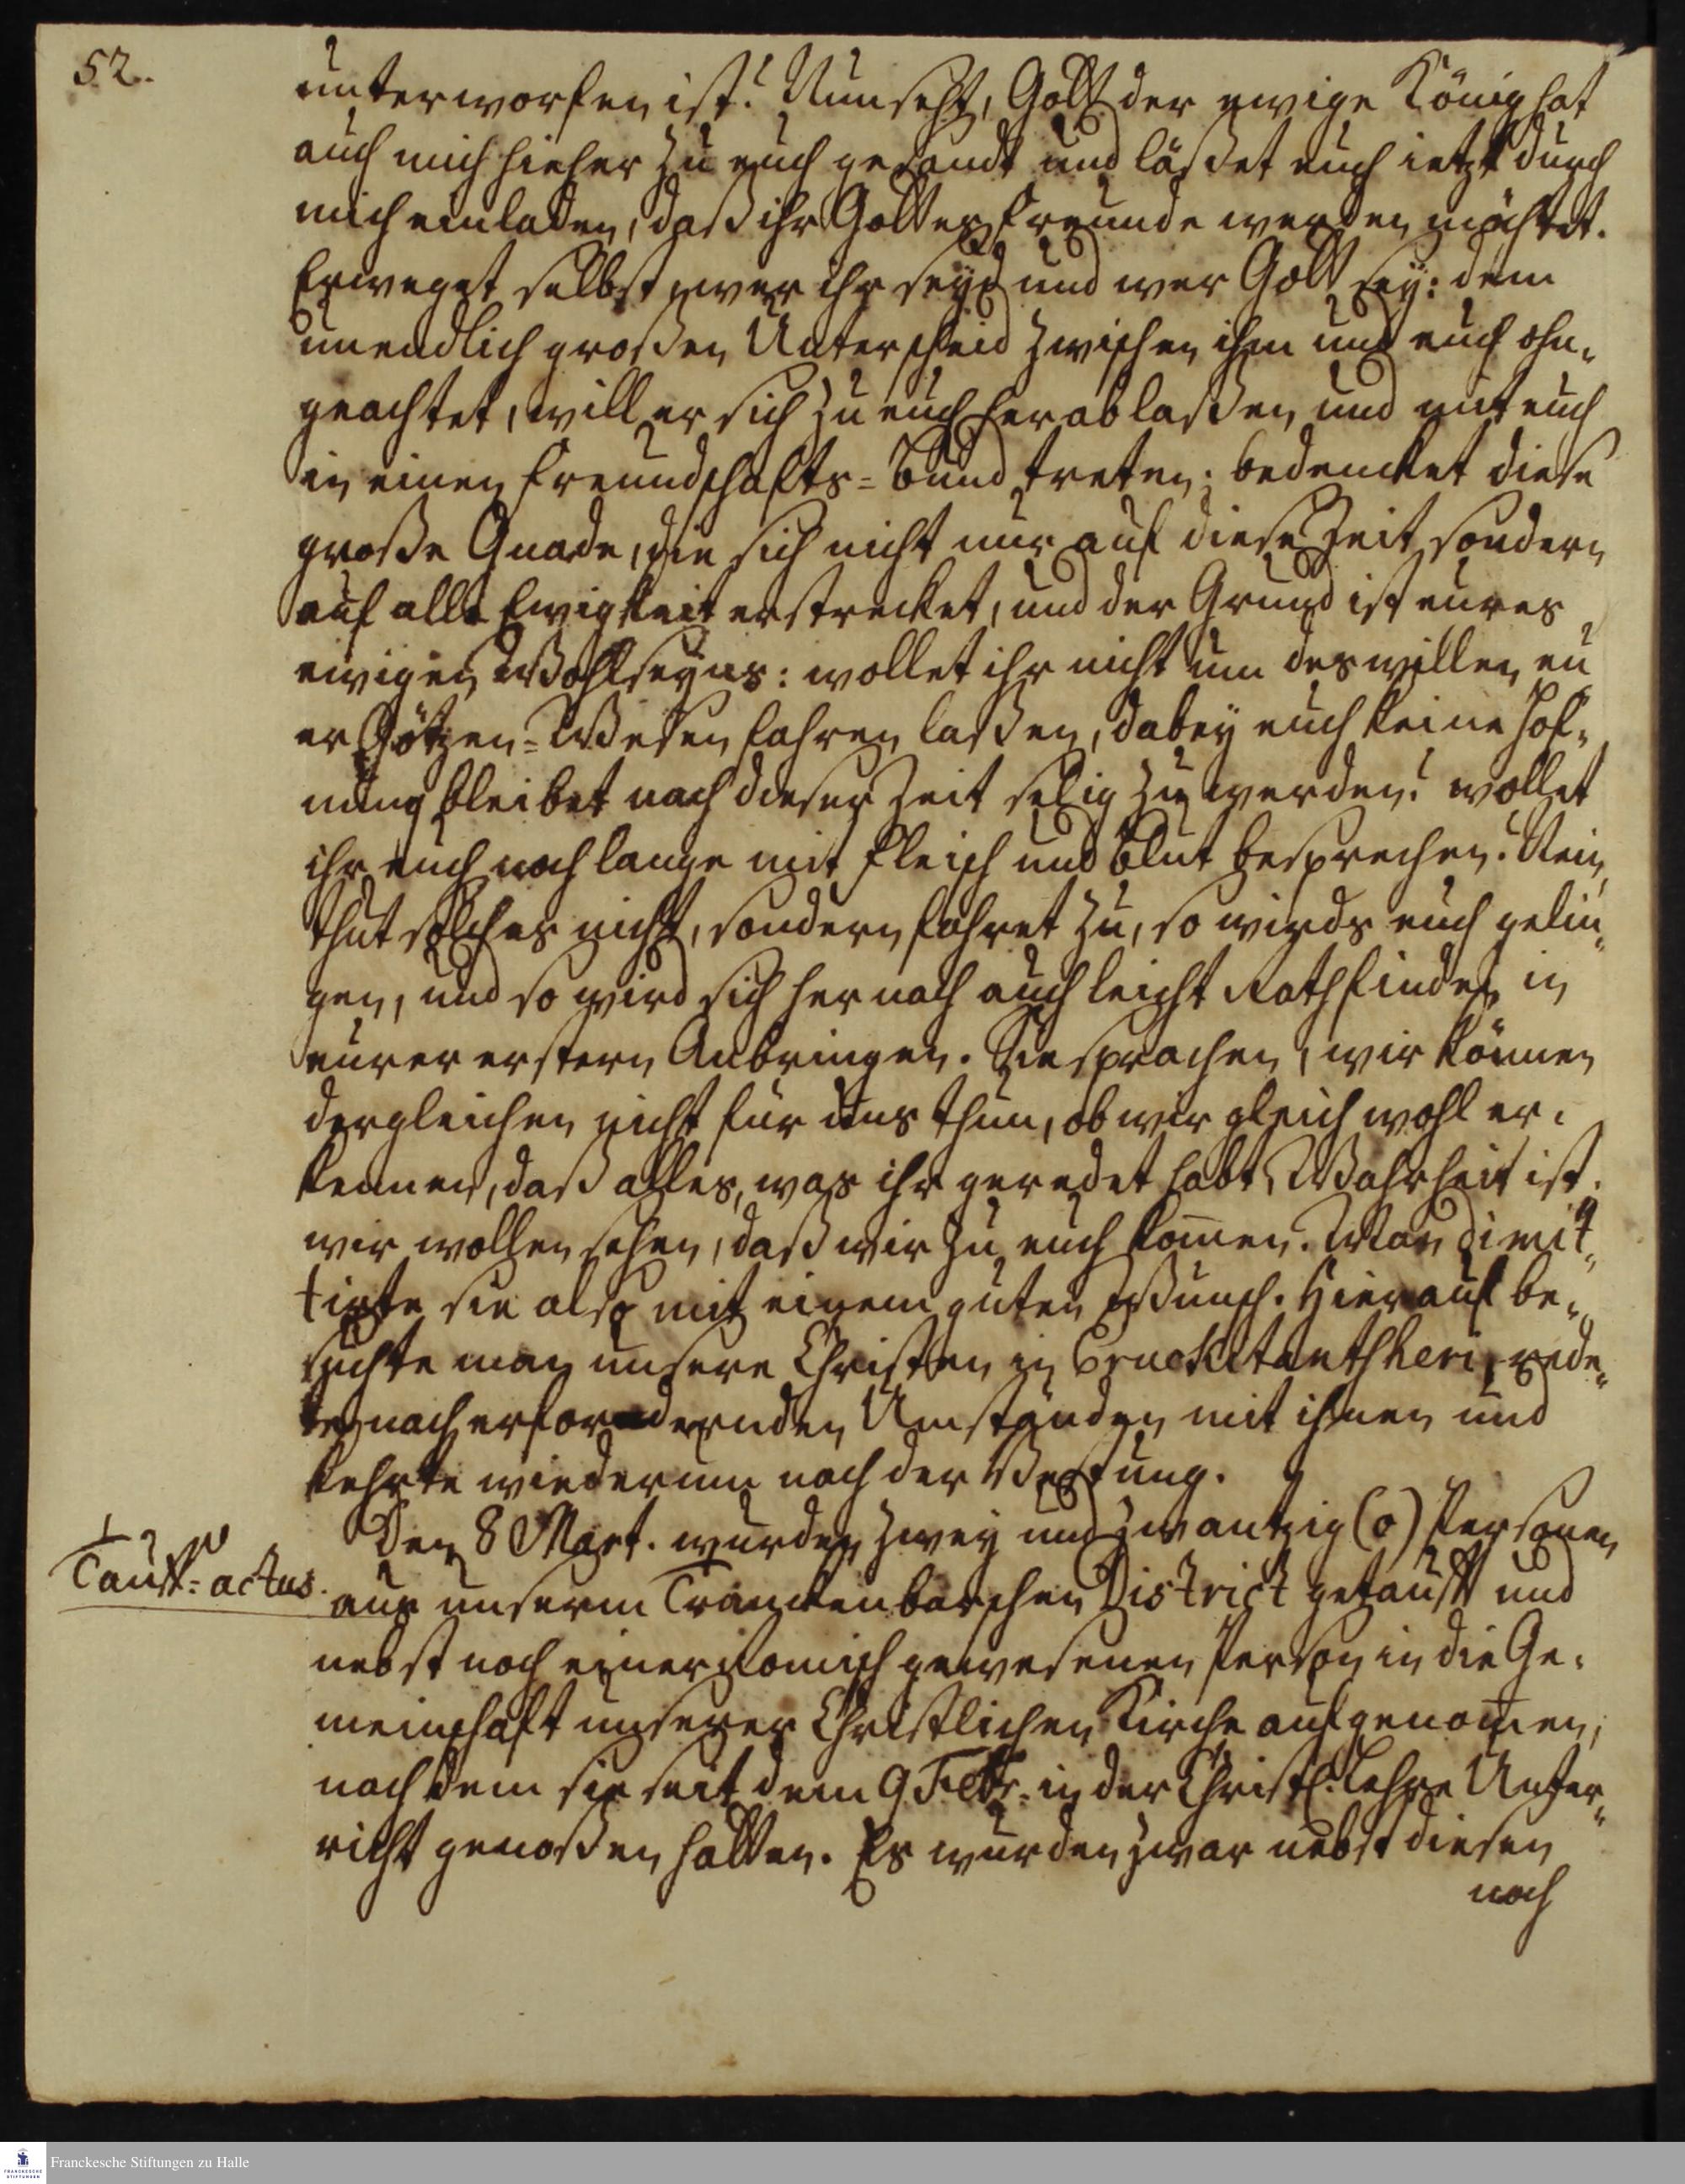 52.
unterworfen ist? Nun seht, Gott der ewige König hat
auch mich hieher zu euch gesandt und läßet euch ietzt durch
mich einladen, daß ihr Gottes Freunde werden möchtet.
Erweget selbst wer ihr seyd und wer Gott sey: dem
unendlich großen Unterscheid zwischen ihm und euch ohn-
geachtet, will er sich zu euch herablaßen und mit euch
in einen Freundschafts-Bund treten: bedencket diese
große Gnade, die sich nicht nur auf diese Zeit sondern
auf alle Ewigkeit erstrecket, und der Grund ist eures
ewigen Wohlseyns: wollet ihr nicht um deswillen eu
er Götzen-Wesen fahren laßen, dabey euch keine Hof-
nung bleibet nach dieser Zeit selig zu werden? wollet
ihr euch noch lange mit Fleisch und Blut besprechen? Nein,
thut solches nicht, sondern fahret zu, so wirds euch gelin-
gen, und so wird sich hernach auch leicht Rath finden in
eurer erstern Anbringen. Sie sprachen, wir können
dergleichen nicht für uns thun, ob wir gleich wohl er-
kennen, daß alles, was ihr geredet habt, Wahrheit ist.
wir wollen sehen, daß wir zu euch komen. Man dimit-
tirte sie also mit einem guten Wunsch. Hierauf be-
suchte man unsere Christen in Erukitantscheri, rede-
te nach erfordernden Umständen mit ihnen und
kehrte wiederum nach der Vestung.
Tauff-actus.
Den 8 Mart. wurden zwey und zwantzig (o) Personen
aus unserm Tranckenbarschen District getaufft und
nebst noch einer Römisch gewesenen Person in die Ge-
meinschaft unserer Christlichen Kirche aufgenomen,
nach dem sie seit dem 9 Febr. in der Christl. Lehre Unter-
richt genoßen hatten. Es wurden zwar nebst diesen
noch
Franckesche Stiftungen zu Halle